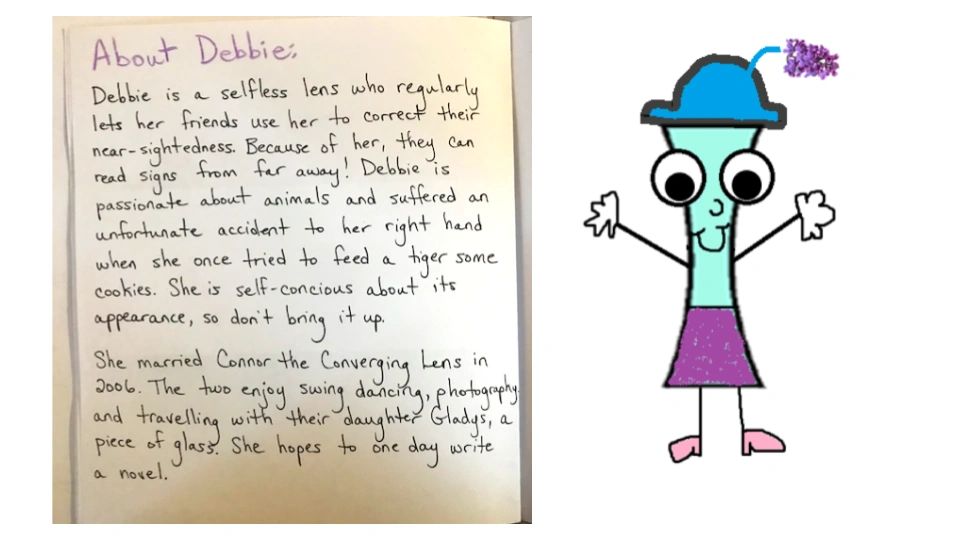 About Debbie:
Debbie is a selfless lens who regularly
lets her friends use her to correct their
near-sightedness. Because of her, they can
read signs from far away! Debbie is
passionate about animals and suffered an
unfortunate accident to her right hand
when she once tried to feed a tiger some
cookies. She is self-concious about its
appearance, so don't bring it up.
She married Connor the Converging Lens in
2006. The two enjoy swing dancing, photography
and travelling with their daughter Gladys, a
piece of glass. She hopes to one day write
a novel.